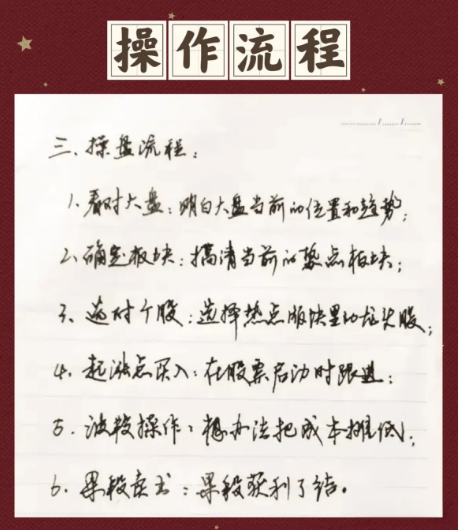 操作流程
三、操盘流程：
1、看对大盘：明白大盘当前的位置和趋势；
2、确定板块：搞清当前的热点板块；
3、选对个股：选择热点版块里的龙头股；
4、起涨点买入：在股票启动时跟进；
5、波段操作：想办法把成本摊低；
6、果段卖出：果段获利了结。